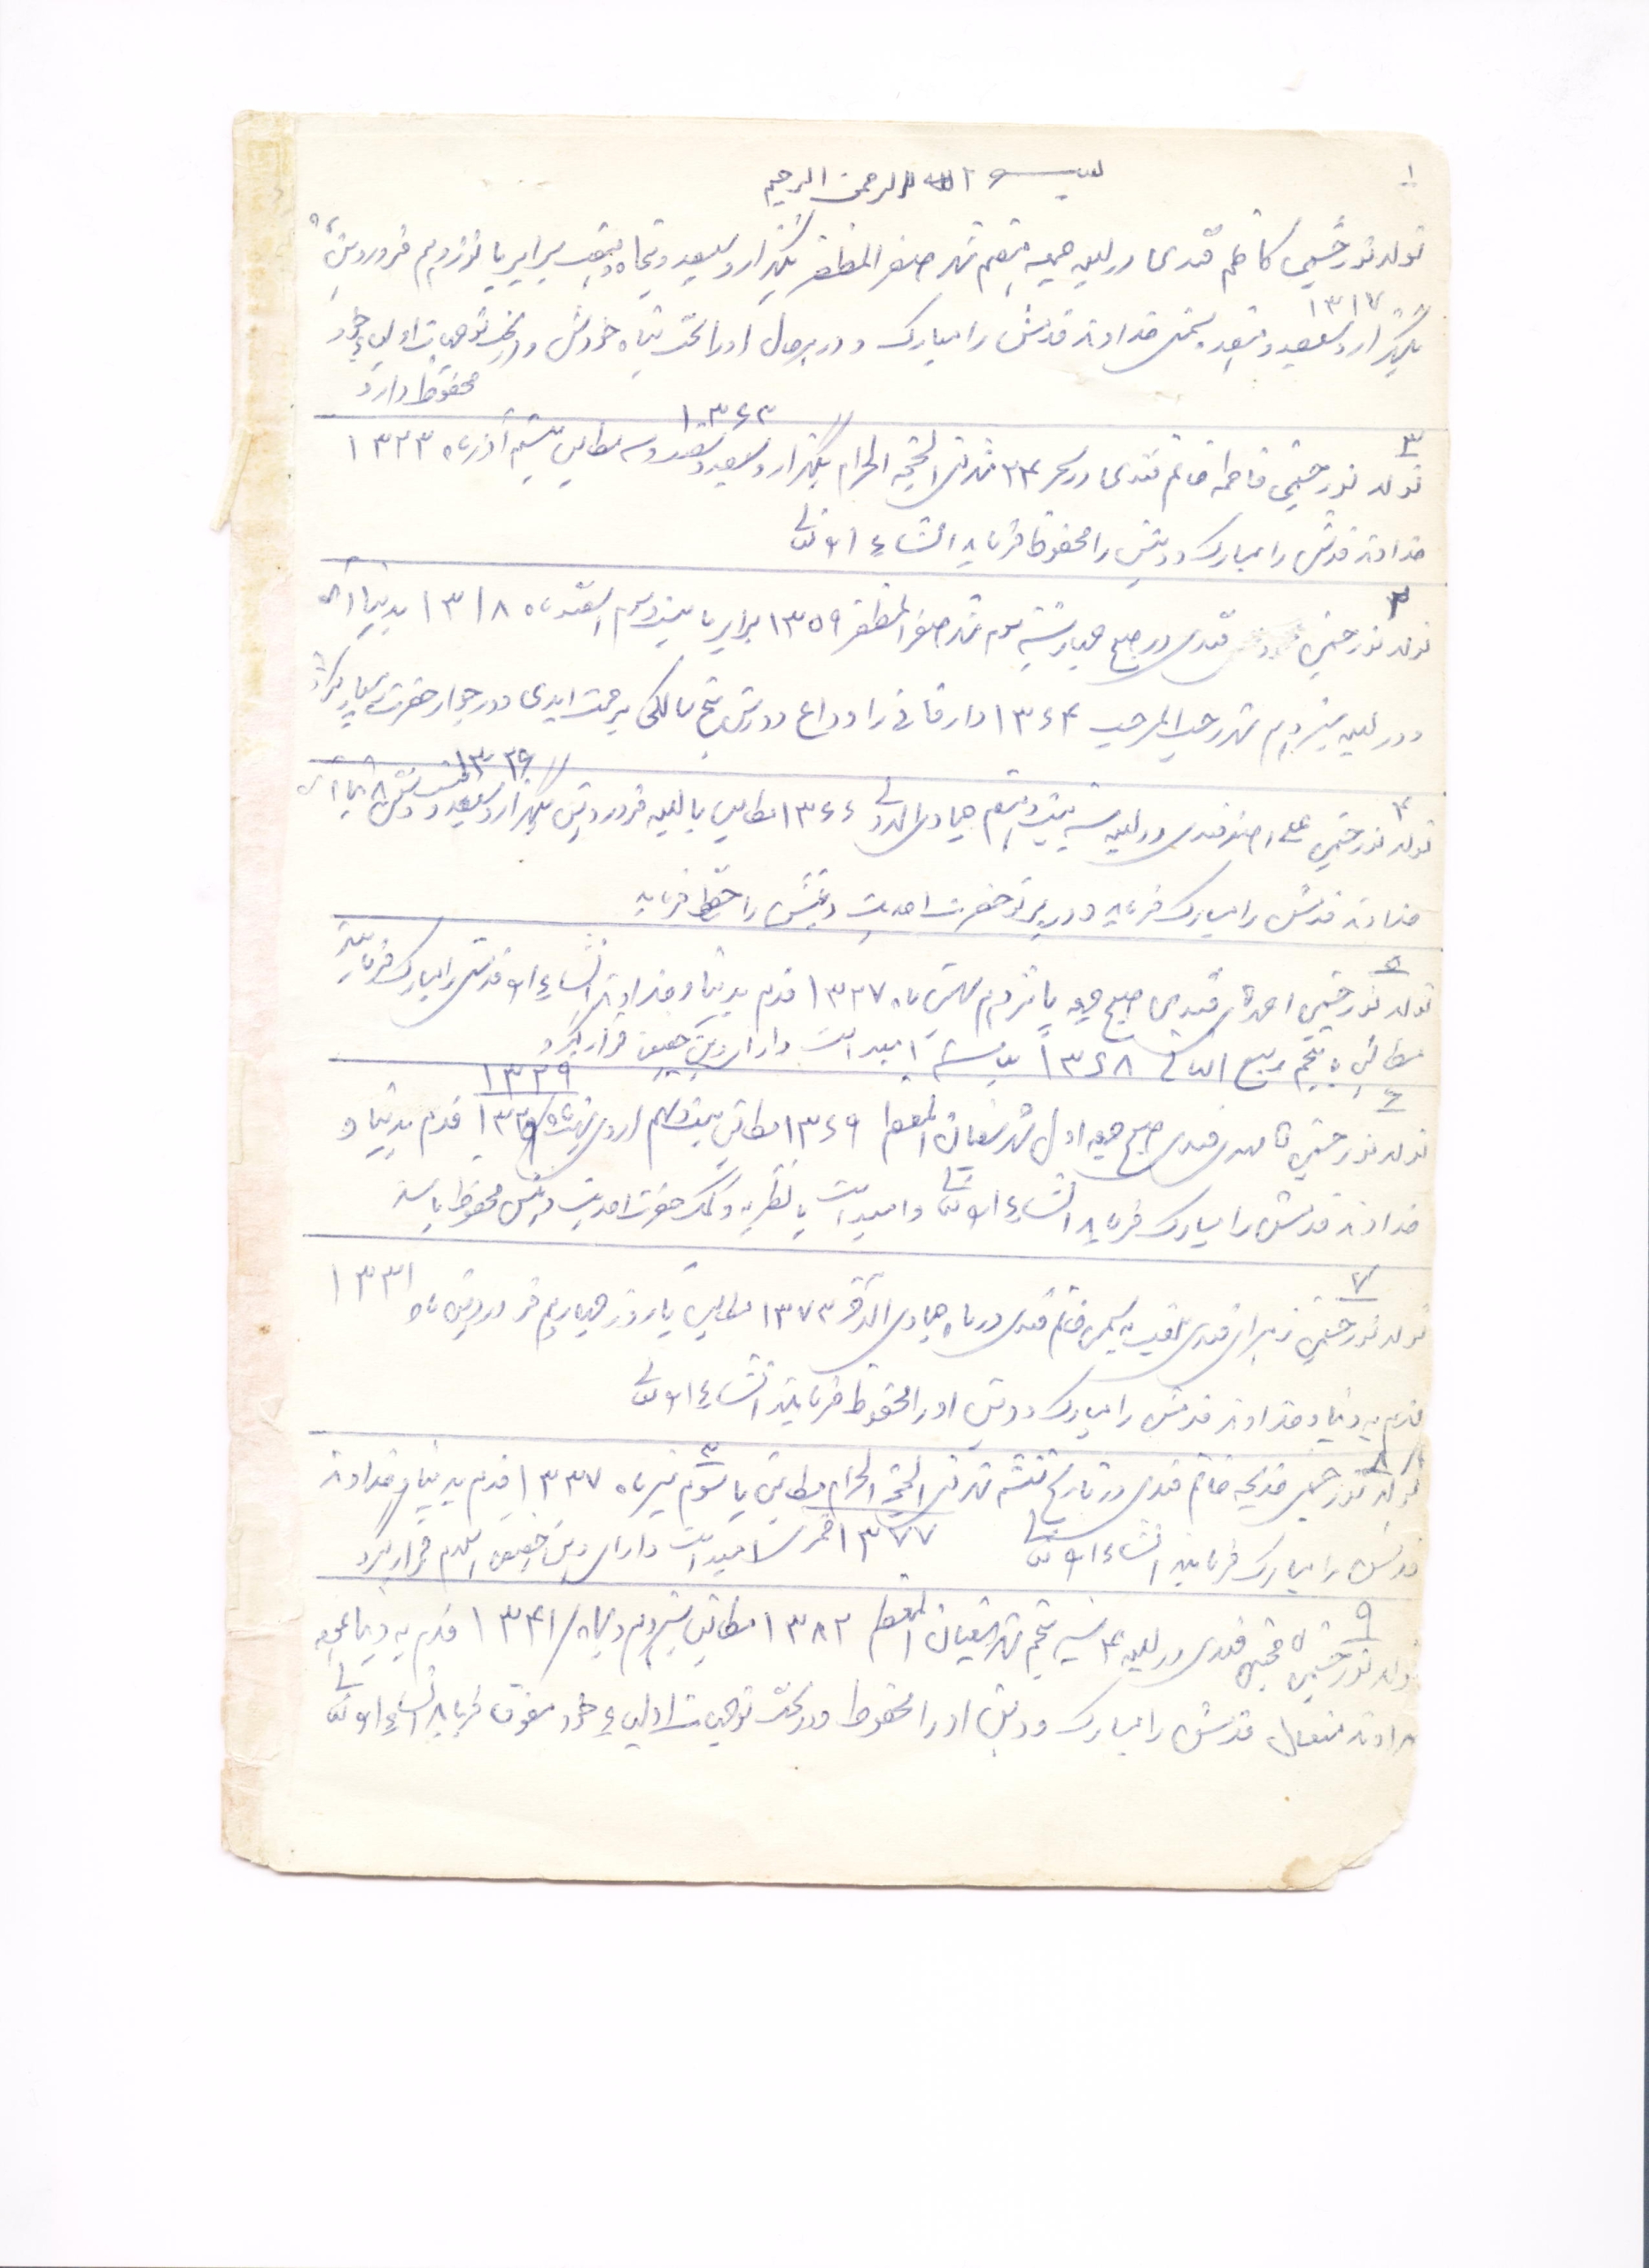 ۱
بسم الله الرحمن الرحیم
تولد نورچشمی کاظم قندی در لیله جمعه هفتم شهر صفر المظفر یکهزار و سیصد و پنجاه و برابر با نوزدهم فروردین ماه
۱۳۱۷
یکهزار و سیصد و هفده شمسی خداوند قدمش را مبارک و در هر حال او را تحت پناه خودش و تحت توجهات اولیاء خود
محفوظ دارد
۱۳۶۳
۳
تولد نورچشمی فاطمه خانم قندی در سحر ۲۴ شهر ذی الحجة الحرام یکهزار و سیصد و شصت و سه مطابق بیستم آذرماه ۱۳۲۳
خداوند قدمش را مبارک و دینش را محفوظ فرماید انشاءالله تعالی
۲
تولد نورچشمی قندی در صبح چهارشنبه سوم شهر صفر المظفر ۱۳۵۹ برابر با اسفندماه ۱۳۱۸ بدنیا آمد
و در لیله سیزدهم شهر رجب المرجب ۱۳۶۴ دار فانی را وداع و در برحمت ایدی و در جوار حضرت
۱۳۲۶
۴
تولد نورچشمی علی اصغر قندی در لیله شنبه بیست و پنجم جمادی الاولی ۱۳۶۶ مطابق با لیله فروردین یکهزار و سیصد و بیست و شش
خداوند قدمش را مبارک فرماید و در پرتو حضرت احدیت دینش را حفظ فرماید
۵
تولد نورچشمی احمد آقای قندی صبح جمعه پانزدهم بهمن ماه ۱۳۲۷ قدم بدنیا و خداوند انشاءالله قدمش را مبارک فرماید
مطابق با پنجم ربیع الثانی ۱۳۶۸ میباشد امید است دارای دین حقیقی قرار گیرد
۱۳۲۹
۶
تولد نورچشمی آقا مهدی قندی صبح جمعه اول شهر شعبان المعظم ۱۳۶۹ مطابق اردیبهشت ماه قدم بدنیا و
خداوند قدمش را مبارک فرماید انشاءالله تعالی و امید است با نظریه و کمک حضرت احدیت دینش محفوظ باشد
۷
تولد نورچشمی زهرای قندی ملقب به خانم قندی در ماه جمادی الاخر ۱۳۷۳ مطابق با روز چهاردهم فروردین ماه ۱۳۳۱
قدم به دنیا و خداوند قدمش را مبارک و دین او را محفوظ فرمایند انشاءالله تعالی
۸
تولد نورچشمی خدیجه خانم قندی در تاریخ ششم شهر ذی الحجة الحرام مطابق با سوم تیرماه ۱۳۳۷ قدم بدنیا و خداوند
قدمش را مبارک فرمایند انشاءالله تعالی ۱۳۷۷ قمری امید است دارای دین حقیقی اسلام قرار گیرد
۹
تولد نورچشمی آقا مجتبی قندی در لیله ۴ شنبه پنجم شهر شعبان المعظم ۱۳۸۲ مطابق دیماه ۱۳۴۱ قدم به دنیا
خداوند متعال قدمش را مبارک و دین او را محفوظ و در تحت توجهات اولیاء خود موفق فرماید انشاءالله تعالی